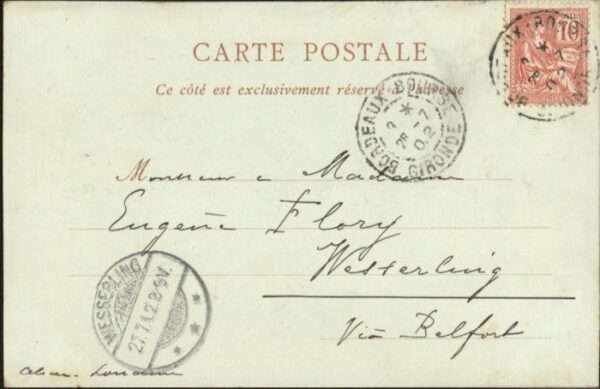 10
CARTE POSTALE
Ce côté est exclusivement réservé à l'adresse
BORDEAUX-BOURSE
*
26 -7
02
GIRONDE
Monsieur & Madame
Eugène Flory
Wesserling
Via Belfort
WESSERLING
27.7.02.8-9V.
Alsace-Lorraine